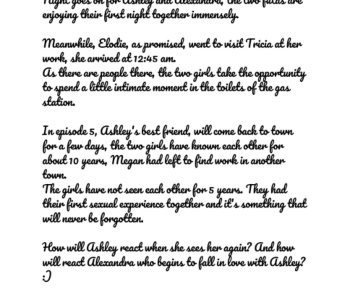 Night goes on for Ashley and Alexandra, the two futas are
enjoying their first night together immensely.
Meanwhile, Elodie, as promised, went to visit Tricia at her
work, she arrived at 12:45 am.
As there are people there, the two girls take the opportunity
to spend a little intimate moment in the toilets of the gas
station.
In episode 5, Ashley's best friend, will come back to town
for a few days, the two girls have known each other for
about 10 years, Megan had left to find work in another
town.
The girls have not seen each other for 5 years. They had
their first sexual experience together and it's something that
will never be forgotten.
How will Ashley react when she sees her again? And how
will react Alexandra who begins to fall in love with Ashley?
;)